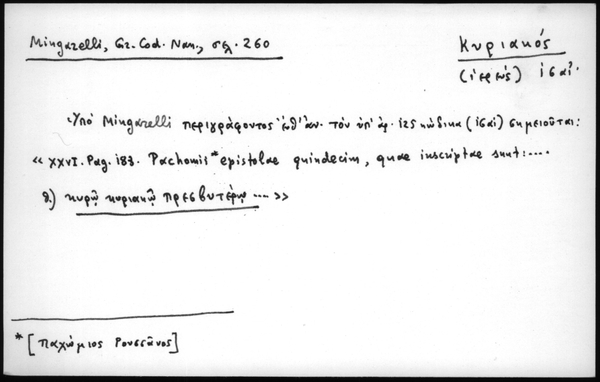 Mingarelli, Gr. Cod. Nan., σελ. 260
Κυριακός
(ἱερεύς) ις αἰ.
Ὑπό Mingarelli περιγράφοντος τόν ὑπ' ἀρ. 125 κώδικα (ις αἰ) σημειοῦται:
«XXVI. Pag. 183. Pachomii* epistolae quindecim, quae inscriptae sunt:....
θ.) κυρῷ κυριακῷ πρεσβυτέρῳ ....»
* [Παχώμιος Ρουσσᾶνος]